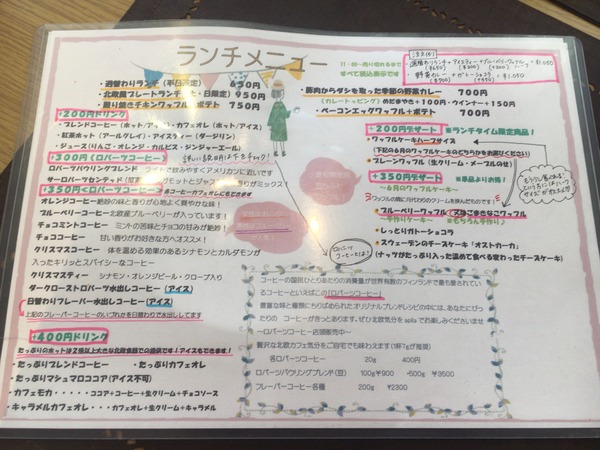 ランチメニュー
11:00~売り切れるまで
すべて税込表示です
・週替わりランチ(平日限定) 650円
・北欧風プレートランチ 日限定) 950円
・照り焼きチキンワッフル ポテト 750円
・豚肉からダシを取った季節の野菜カレー 700円
(カレートッピング)めだまやき+100円・ウインナー+150円
・ベーコンエッグワッフル+ポテト 700円
+200円ドリンク
・ブレンドコーヒー(ホット/アイス)・カフェオレ(ホット/アイス)
・紅茶ホット(アールグレイ)・アイスティー(ダージリン)
・ジュース(りんご・オレンジ・カルピス・ジンジャーエール)
+300円<ロバーツコーヒー>
ロバーツパウリングブレンド
サーロバーツセンテッド
+350円<ロバーツコーヒー>
各コーヒーカフェオレにもできます
オレンジコーヒー 絶妙の味と香りが心地よく爽やかな味
ブルーベリーコーヒー 北欧産ブルーベリーが入っています!
チョコミントコーヒー ミントの苦味とチョコの甘みが絶妙
チョココーヒー 甘い香りがお好きな方へオススメ!
クリスマスコーヒー 体を温める効果のあるシナモンとカルダモンが
入ったキリッとスパイシーなコーヒー
クリスマスティー シナモン・オレンジピール・クローブ入り
ダークローストロバーツ水出しコーヒー(アイス)
日替わりフレーバー水出しコーヒー(アイス)
上記のフレーバーコーヒーのいづれかを日替わりで水出ししてます
+400円ドリンク
たっぷりのホットは2倍以上大きな北欧食器での提供です!アイスもできます!
・たっぷりブレンドコーヒー ・たっぷりカフェオレ
・たっぷりマシュマロココア(アイス不可)
・カフェモカ・・・・・ココア+コーヒー+生クリーム+チョコソース
・キャラメルカフェオレ・・・カフェオレ+生クリーム+キャラメル
+200円デザート ※ランチタイム限定商品!
・ワッフルケーキハーフサイズ
(下記の6月のワッフルケーキのどちらかをお選びください)
・プレーンワッフル(生クリーム・メープルのせ)
+350円デザート ※単品よりお得!
~6月のワッフルケーキ~
ワッフルの間に月代わりのクリームを挟んだものです
・ブルーベリーワッフル 又は ごまきなこワッフル
~手作りケーキ~ ※もちろん手作り♪
・しっとりガトーショコラ
・スウェーデンのチーズケーキ「オストカーカ」
(ナッツがたっぷり入った温めて食べる変わったチーズケーキ)
コーヒーの国民ひとりあたりの消費量が世界有数のフィンランドで最も愛されてい
るコーヒーといえばこの「ロバーツコーヒー」
豊富な味と種類にちりばめられたオリジナルブレンドレシピの中には、あなたにぴっ
たりの コーヒーがきっとあります。ぜひ北欧気分を apila でお楽しみくださいませ
~ロバーツコーヒー店頭販売中~
贅沢な北欧カフェ気分をご自宅でも味わえます(1杯7gが推奨)
各ロバーツコーヒー 20g 400円
ロバーツパウリングブレンド(豆) 100g¥900 ・500g ¥3500
フレーバーコーヒー各種 200g ¥2300